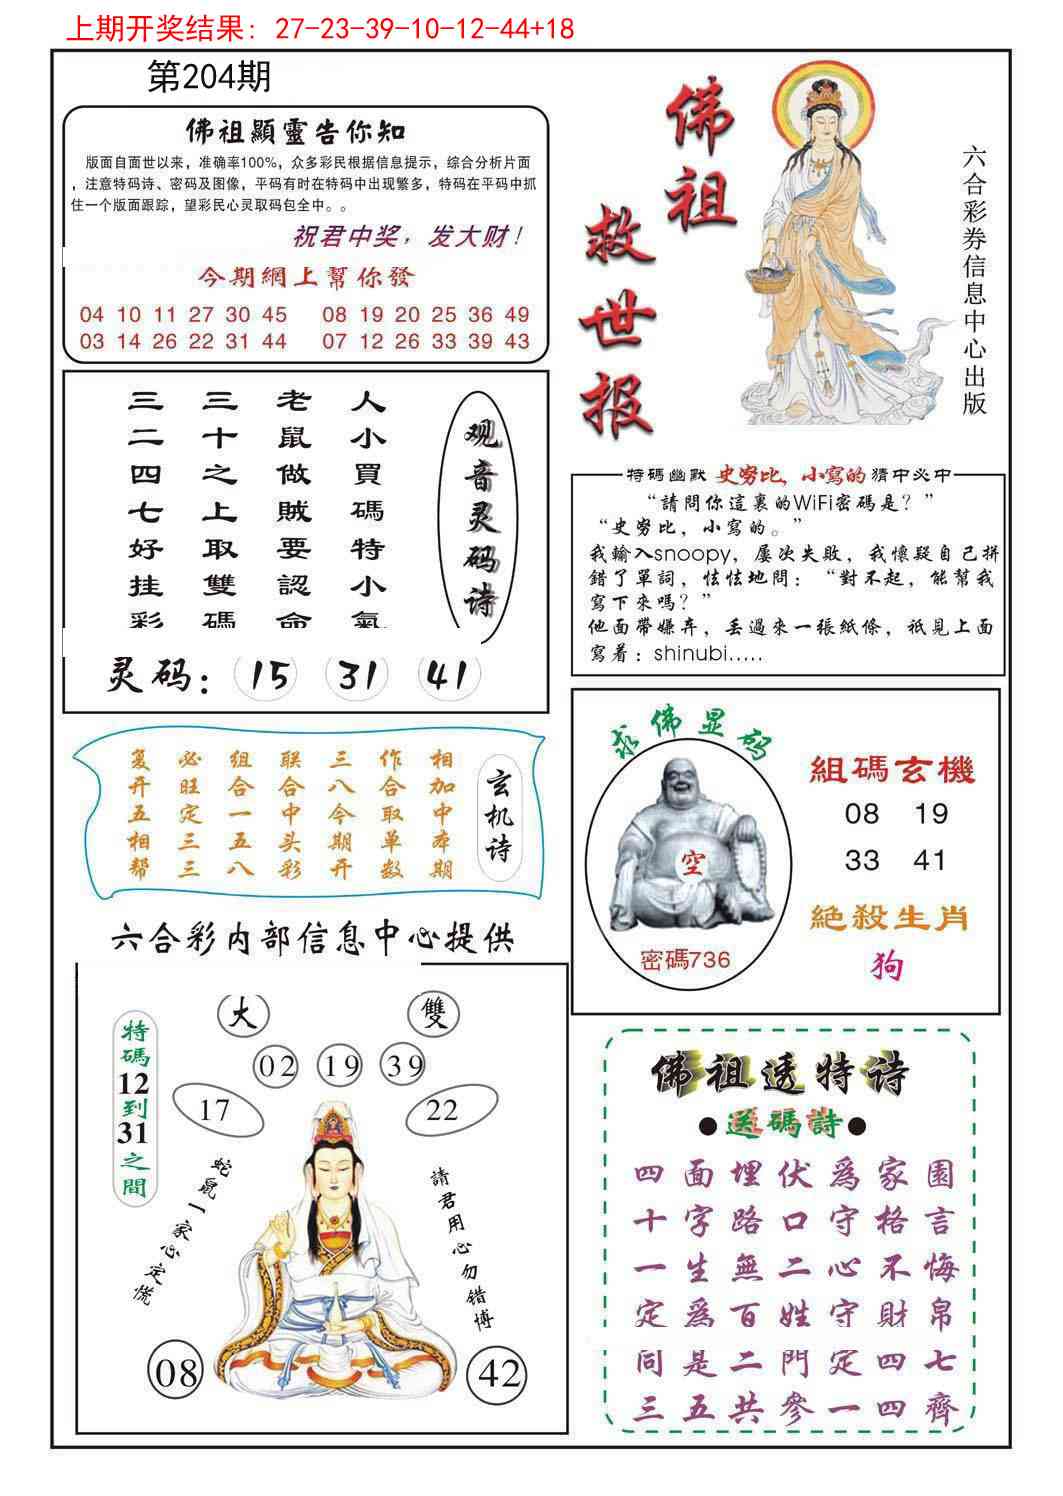 上期开奖结果: 27-23-39-10-12-44+18
第204期
佛祖顯靈告你知
版面自面世以来，准确率100%，众多彩民根据信息提示，综合分析片面
，注意特码诗、密码及图像，平码有时在特码中出现繁多，特码在平码中抓
住一个版面跟踪，望彩民心灵取码包全中。。
祝君中奖，发大财！
今期網上幫你發
04 10 11 27 30 45 08 19 20 25 36 49
03 14 26 22 31 44 07 12 26 33 39 43
佛祖救世报
六合彩券信息中心出版
观音灵码诗
人小買碼特小氣
老鼠做賊要認命
三十之上取雙碼
三二四七好挂彩
灵码：15 31 41
特碼幽默 史努比，小寫的 猜中必中
“請問你這裏的WiFi密碼是？”
“史努比，小寫的。”
我輸入snoopy，屢次失敗，我懷疑自己拼
錯了單詞，怯怯地問：“對不起，能幫我
寫下來嗎？”
他面帶嫌弃，丢過來一張紙條，祇見上面
寫着：shinubi.....
玄机诗
相加中本期
作合取单数
三八今期开
联合中头彩
组合一五八
必旺定三三
复开五相帮
求佛显码
空
密碼736
組碼玄機
08 19
33 41
絕殺生肖
狗
六合彩内部信息中心提供
特碼12到31之間
大 雙
02 19 39
17 22
蛇鼠一家心定慌
請君用心勿错博
08 42
佛祖透特诗
●送碼詩●
四面埋伏爲家園
十字路口守格言
一生無二心不悔
定爲百姓守財帛
同是二門定四七
三五共參一四齊